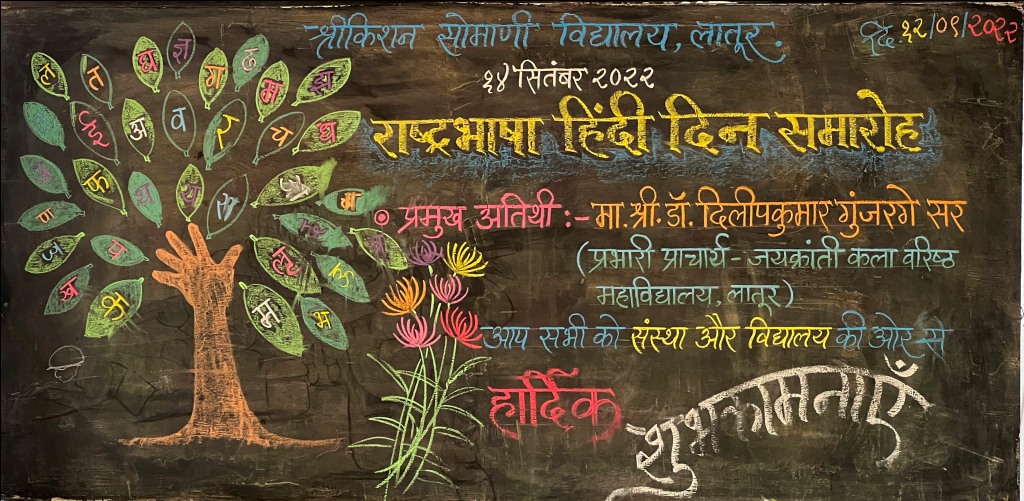 श्रीकिशन सोमाणी विद्यालय, लातूर.
दि. १२/०९/२०२२
१४ सितंबर २०२२
राष्ट्रभाषा हिंदी दिन समारोह
प्रमुख अतिथी :- मा. श्री. डॉ. दिलीपकुमार गुंजरगे सर
(प्रभारी प्राचार्य - जयक्रांती कला वरिष्ठ
महाविद्यालय, लातूर)
आप सभी को संस्था और विद्यालय की ओर से
हार्दिक
शुभकामनाएँ
त घ ज्ञ ग
अ व
घ
फ य स
म
प्र
ख
म भ